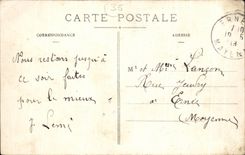 E35
CARTE POSTALE
CORRESPONDANCE
ADRESSE
Nous restons jusqu'à
ce soir faites
pour le mieux
J.
Mr et Mme Lançon
Rue
à Ernée
Mayenne